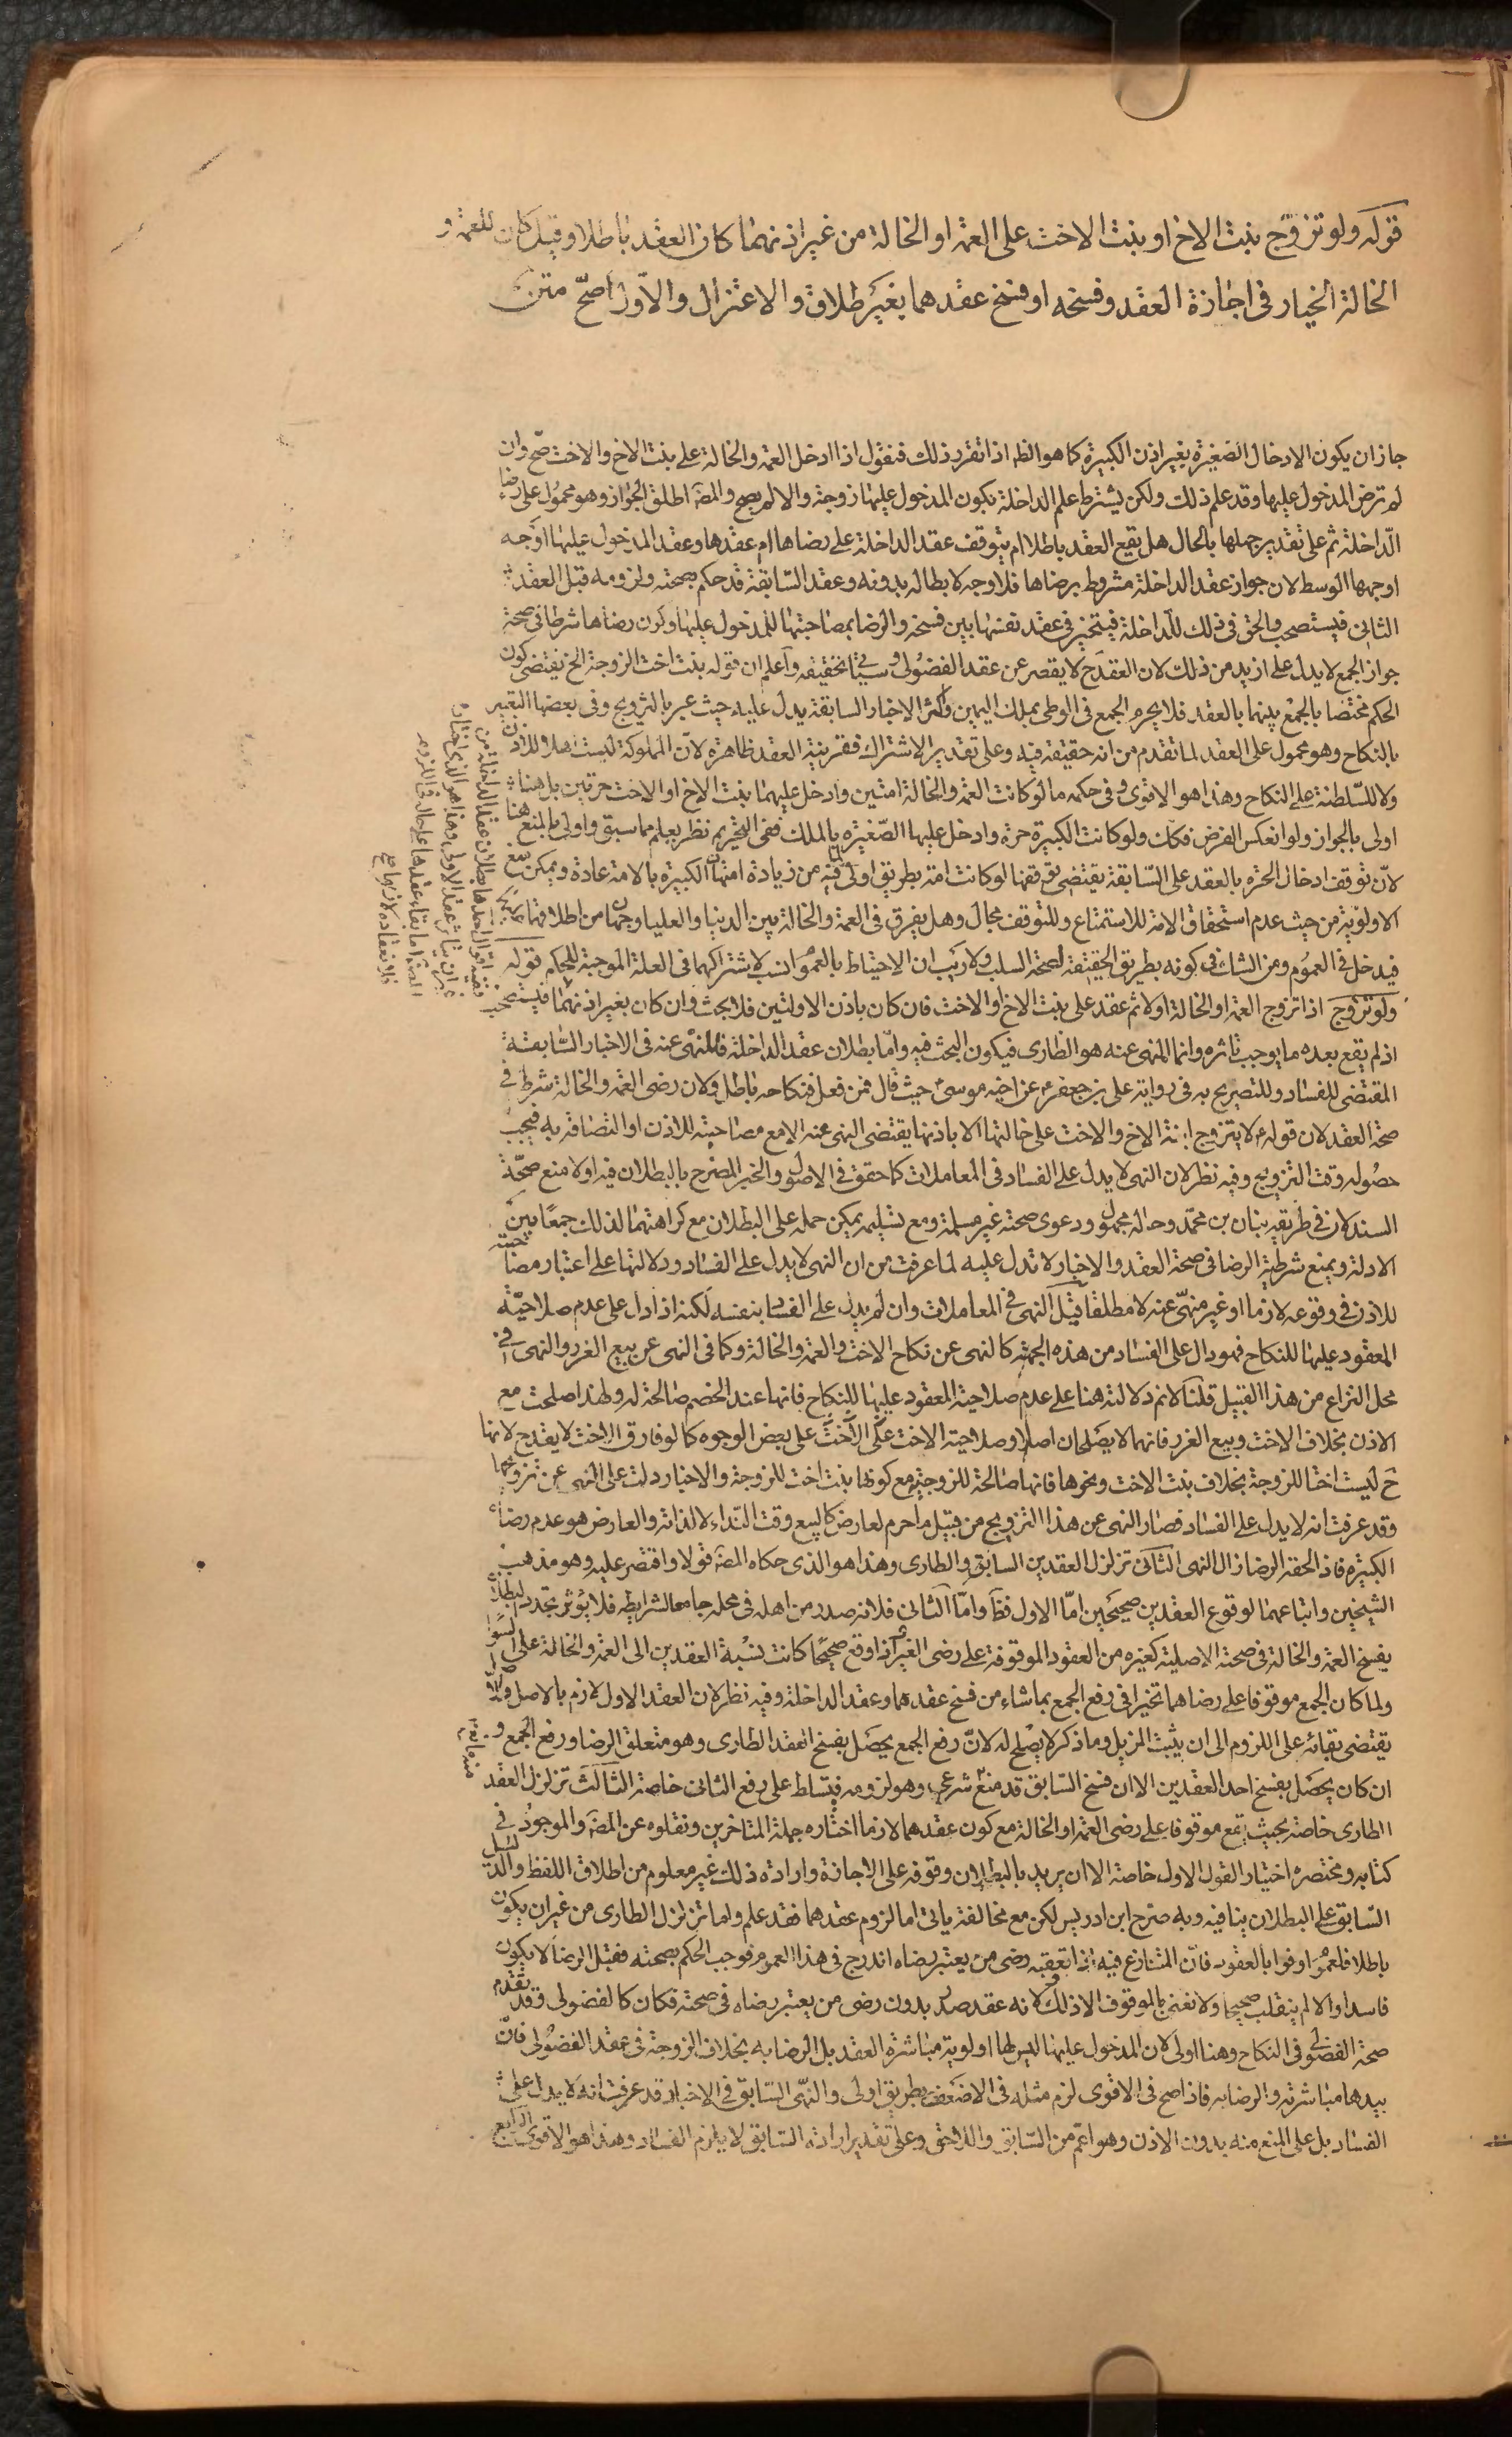 قوله ولو تزوج بنت الاخ او بنت الاخت على العمة او الخالة من غير اذنهما كان العقد باطلا وقيل كان للعمة و
الخالة الخيار فى اجازة العقد وفسخه او فسخ عقدهما بغير طلاق والاعتزال والاول اصح متن
جاز ان يكون الادخال الصغيرة بغير اذن الكبيرة كما هو الظ اذا تقرر ذلك فنقول اذا ادخل العمة والخالة على بنت الاخ والاخت صح وان
لم ترض المدخول عليها وقد علم ذلك ولكن يشترط علم الداخلة بكون المدخول عليها زوجة والا لم يصح والمصـ اطلق الجواز وهو محمول على رضاء
الداخلة ثم على تقدير جهلها بالحال هل يقع العقد باطلا ام يتوقف عقد الداخلة على رضاها ام عقدها وعقد المدخول عليها اوجه
اوجهها الوسط لان جواز عقد الداخلة مشروط برضاها فلا وجه لابطاله بدونه وعقد السابقة قد حكم بصحته ولزومه قبل العقد
الثانى فيستصحب والحق فى ذلك للداخلة فيتخير فى عقد نفسها بين فسخه والرضا بمصاحبتها للمدخول عليها وكون رضاها شرطا فى صحة
جواز الجمع لا يدل على ازيد من ذلك لان العقد ح لا يقصر عن عقد الفضولى وسياتى تحقيقه واعلم ان قوله بنت اخت الزوجة الخ يقتضى كون
الحكم مختصا بالجمع بينهما بالعقد فلا يحرم الجمع فى الوطى بملك اليمين واكثر الاخبار السابقة يدل عليه حيث عبر بالتزويج وفى بعضها التعبير
بالنكاح وهو محمول على العقد لما تقدم من انه حقيقة فيه وعلى تقدير الاشتراك فقرينة العقد ظاهرة لان المملوكة ليست اهلا للاذن
ولا للسلطنة على النكاح وهذا هو الاقوى وفى حكمه ما لو كانت العمة والخالة امتين وادخل عليهما بنت الاخ او الاخت حرتين بل هنا
اولى بالجواز ولو انعكس الفرض فكك ولو كانت الكبيرة حرة وادخل عليها الصغيرة بالملك ففى التحريم نظر يعلم مما سبق واولى بالمنع هنا
لان توقف ادخال الحرة بالعقد على السابقة يقتضى توقفها لو كانت امة بطريق اولى لما فيه من زيادة امتهان الكبيرة بالامة عادة ويمكن منع
الاولوية من حيث عدم استحقاق الامة للاستمتاع وللتوقف مجال وهل يفرق فى العمة والخالة بين الدنيا والعليا وجهان من اطلاقهما
فيدخل فى العموم ومن الشك فى كونه بطريق الحقيقة لصحة السلب ولا ريب ان الاحتياط بالعموم انسب لاشتراكهما فى العلة الموجبة للحكم قوله
ولو تزوج اذا تزوج العمة او الخالة اولا ثم عقد على بنت الاخ او الاخت فان كان باذن الاوليتين فلا بحث وان كان بغير اذنهما
اذ لم يقع بعده ما يوجب تاثره وانما المنهى عنه هو الطارى فيكون البحث فيه واما بطلان عقد الداخلة فللنهى عنه فى الاخبار السابقة
المقتضى للفساد وللتصريح به فى رواية على بن جعفر عن اخيه موسى حيث قال فمن فعل فنكاحه باطل ولان رضى العمة والخالة شرط فى
صحة العقد لان قوله لا يتزوج ابنة الاخ والاخت على خالتها الا باذنها يقتضى النهى عنه الا مع مصاحبته للاذن او التصاقه به فيجب
حصوله وقت التزويج وفيه نظر لان النهى لا يدل على الفساد فى المعاملات كما حقق فى الاصول والخبر المصرح بالبطلان فيه اولا منع صحة
السند لان فى طريقه بنان بن محمد وحاله مجهول ودعوى صحته غير مسلمة ومع تسليمه يمكن حمله على البطلان مع كراهتهما لذلك جمعا بين
الادلة ويمنع شرطية الرضا فى صحة العقد والاخبار لا تدل عليه لما عرفت من ان النهى لا يدل على الفساد ودلالتها على اعتبار مصاحبته
للاذن فى وقوعه لازما او غير منهى عنه لا مطلقا قيل النهى فى المعاملات وان لم يدل على الفساد بنفسه لكنه اذا دل على عدم صلاحية
المعقود عليها للنكاح فهو دال على الفساد من هذه الجهة كالنهى عن نكاح الاخت والعمة والخالة وكما فى النهى عن بيع الغرر والنهى فى
محل النزاع من هذا القبيل قلنا لا نم دلالته هنا على عدم صلاحية المعقود عليها للنكاح فانها عند الخصم صالحة له ولهذا صلحت مع
الاذن بخلاف الاخت وبيع الغرر فانهما لا يصلحان اصلا وصلاحية الاخت على الاخت على بعض الوجوه كما لو فارق الاخت لا يقدح لانها
ح ليست اختا للزوجة بخلاف بنت الاخت ونحوها فانها صالحة للزوجية مع كونها بنت اخت للزوجة والاخبار دلت على النهى عن تزويجها
وقد عرفت انه لا يدل على الفساد فصار النهى عن هذا التزويج من قبيل ما حرم لعارض كالبيع وقت النداء لا لذاته والعارض هو عدم رضاء
الكبيرة فاذا لحقه الرضا زال النهى الثانى تزلزل العقدين السابق والطارى وهذا هو الذى حكاه المصـ قولا واقتصر عليه وهو مذهب
الشيخين واتباعهما لوقوع العقدين صحيحين اما الاول فظ واما الثانى فلانه صدر من اهله فى محله جامعا لشرايطه فلا يؤثر تجدد البطلان
بفسخ العمة والخالة فى صحته الاصلية كغيره من العقود الموقوفة على رضى الغير اذا وقع صحيحا كانت نسبة العقدين الى العمة والخالة على السواء
ولما كان الجمع موقوفا على رضاهما تخيرا فى رفع الجمع بما شاء من فسخ عقدهما وعقد الداخلة وفيه نظر لان العقد الاول لازم بالاصل
يقتضى بقائه على اللزوم الى ان يثبت المزيل وما ذكر لا يصلح له لان رفع الجمع يحصل بفسخ العقد الطارى وهو متعلق الرضا ورفع الجمع و
ان كان يحصل بفسخ احد العقدين الا ان فسخ السابق قد منع شرعى وهو لزومه فيتسلط على رفع الثانى خاصة الثالث تزلزل العقد
الطارى خاصة بحيث يقع موقوفا على رضى العمة او الخالة مع كون عقدهما لازما اختاره جملة المتاخرين ونقلوه عن المصـ والموجود فى
كتابه ومختصره اختيار القول الاول خاصة الا ان يريد بالبطلان وقوفه على الاجازة وارادة ذلك غير معلوم من اطلاق اللفظ والدليل
السابق على البطلان ينافيه وبه صرح ابن ادريس لكن مع مخالفة ياتى اما لزوم عقدهما فقد علم واما تزلزل الطارى من غير ان يكون
باطلا فلعموم اوفوا بالعقود فان المتنازع فيه اذا تعقبه رضى من يعتبر رضاه اندرج فى هذا العموم فوجب الحكم بصحته فقبل الرضا لا يكون
فاسدا والا لم ينقلب صحيحا ولا نعنى بالموقوف الا ذلك ولانه عقد صدر بدون رضى من يعتبر رضاه فى صحته فكان كالفضولى وقد تقدم
صحة الفضولى فى النكاح وهنا اولى لان المدخول عليها ليس لها اولوية مباشرة العقد بل الرضا به بخلاف الزوجة فى عقد الفضولى فان
بيدها مباشرته والرضا به فاذا صح فى الاقوى لزم مثله فى الاضعف بطريق اولى والنهى السابق فى الاخبار قد عرفت انه لا يدل على
الفساد بل على المنع منه بدون الاذن وهو اعم من السابق واللاحق وعلى تقدير ارادة السابق لا يلزم الفساد وهذا هو الاقوى الرابع